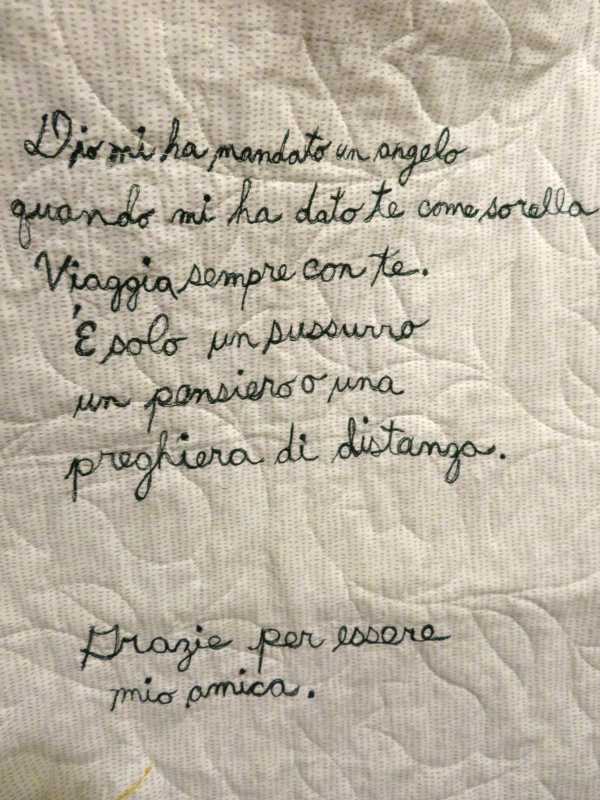 Dio mi ha mandato un angelo
quando mi ha dato te come sorella
Viaggia sempre con te.
È solo un sussurro
un pensiero o una
preghiera di distanza.
Grazie per essere
mio amica.